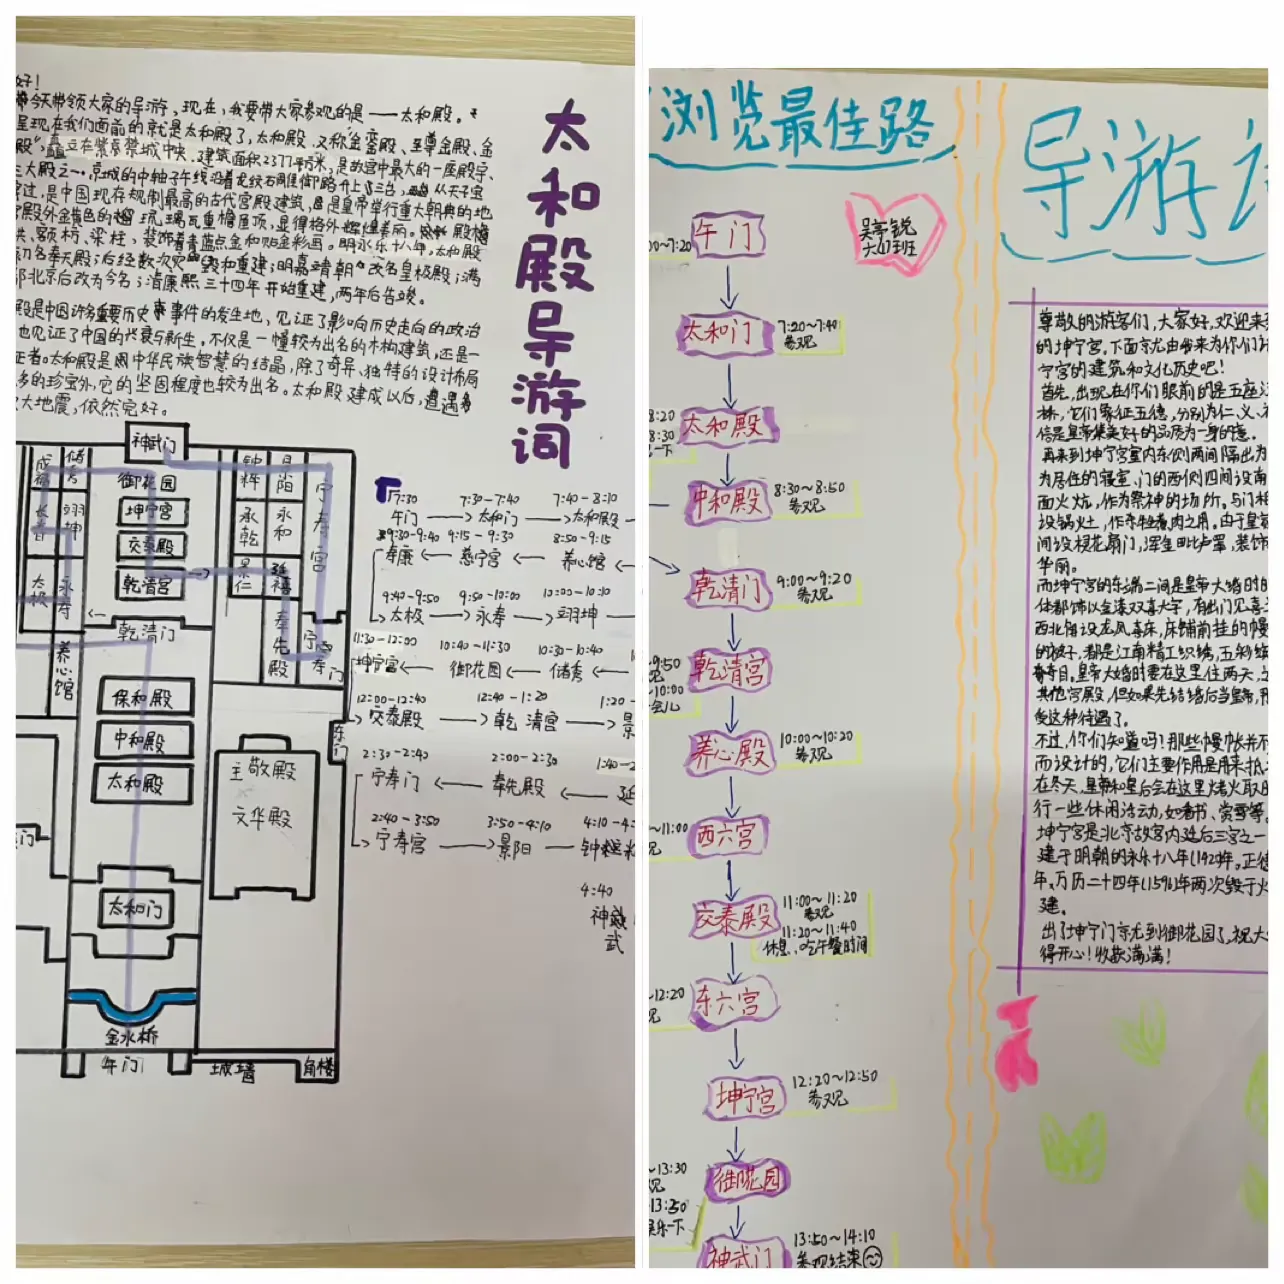 太和殿导游词
好！
今天带领大家的导游，现在，我要带大家参观的是——太和殿。
呈现在我们面前的就是太和殿了，太和殿，又称"金銮殿、至尊金殿、金
殿"，矗立在紫京禁城中央，建筑面积2377平方米，是故宫中最大的一座殿宇、
三大殿之一。京城的中轴子午线沿着龙纹石雕御路升上三台，从天子宝
穿过，是中国现存规制最高的古代宫殿建筑，是皇帝举行重大朝典的地
殿外金黄色的琉璃瓦重檐屋顶，显得格外辉煌美丽。殿檐
拱、额枋、梁柱，装饰着青蓝点金和贴金彩画。明永乐十八年，太和殿
初名奉天殿；后经数次灾毁和重建；明嘉靖朝改名皇极殿；满
都北京后改为今名；清康熙三十四年开始重建，两年后告竣。
殿是中国许多重要历史事件的发生地，见证了影响历史走向的政治
也见证了中国的兴衰与新生。不仅是一幢较为出名的木构建筑，还是一
证者。太和殿是中华民族智慧的结晶，除了奇异、独特的设计布局
多的珍宝外，它的坚固程度也较为出名。太和殿建成以后，遭遇多
次大地震，依然完好。
神武门
御花园
坤宁宫
交泰殿
乾清宫
乾清门
保和殿
中和殿
太和殿
太和门
金水桥
午门
城墙
角楼
储秀
长春
翊坤
太极
永寿
养心馆
钟粹
景阳
承乾
永和
景仁
延禧
奉先殿
宁寿宫
宁寿门
东门
主敬殿
文华殿
7:30 7:30-7:40 7:40-8:10
午门→太和门→太和殿
9:30-9:40 9:15-9:30 8:50-9:15
寿康←慈宁宫←养心馆
9:40-9:50 9:50-10:00 10:00-10:10
太极→永寿→翊坤
11:30-12:00 10:40-11:30 10:30-10:40
坤宁宫←御花园←储秀
12:00-12:40 12:40-1:20 1:20-
交泰殿→乾清宫→景
2:30-2:40 2:00-2:30 1:40-2
宁寿门←奉先殿←延
2:40-3:50 3:50-4:10 4:10-4:
宁寿宫→景阳→钟粹
4:40
神武
浏览最佳路
吴亭锐
午门
~7:20
太和门
7:20~7:40
参观
太和殿
8:20
8:30
中和殿
8:30~8:50
参观
乾清门
9:00~9:20
参观
乾清宫
~9:50
~10:00
会儿
养心殿
10:00~10:20
参观
西六宫
~11:00
交泰殿
11:00~11:20
参观
11:20~11:40
休息，吃午餐时间
东六宫
~12:20
坤宁宫
12:20~12:50
参观
御花园
~13:30
13:50
娱乐一下
神武门
13:50~14:10
参观结束
导游
尊敬的游客们，大家好，欢迎来到
的坤宁宫。下面就由我来为你们
宁宫的建筑和文化历史吧！
首先，出现在你们眼前的是五座
它们象征五德，分别为仁、义、礼
信是皇帝集美好的品质为一身的意。
再来到坤宁宫室内东侧两间隔出为
为居住的寝室，门的西侧四间设南
面火炕，作为祭神的场所。与门相
设锅灶，作杀牲煮肉之用。由于皇家
间设棂花扇门，浑金毗卢罩，装饰
华丽。
而坤宁宫的东端二间是皇帝大婚时的
体都饰以金漆双喜大字，有出门见喜
西北角设龙凤喜床，床铺前挂的幔
的被子，都是江南精工织绣，五彩缤
夺目。皇帝大婚时要在这里住两天，
其他宫殿，但如果先结婚后当皇帝，那
受这种待遇了。
不过，你们知道吗！那些幔帐并不
而设计的，它们主要作用是用来抵
在冬天，皇帝和皇后会在这里烤火取
行一些休闲活动，如看书、赏雪等。
坤宁宫是北京故宫内廷后三宫之一
建于明朝的永乐十八年(1420)年。正德
年、万历二十四年(1596)年两次毁于火
建。
出了坤宁门就到御花园了，祝大
得开心！收获满满！